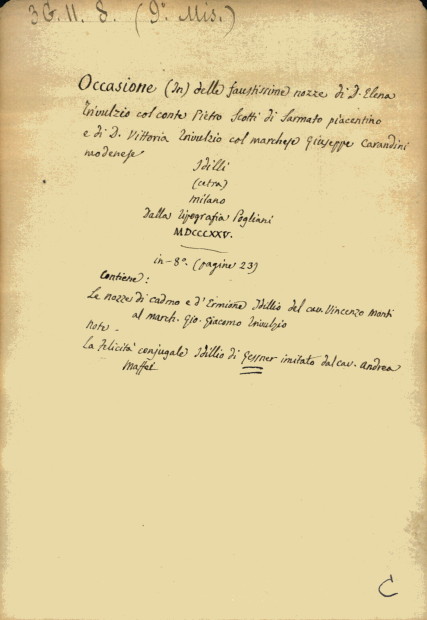 3G.11.8. (9º Mis.)
Occasione (In) delle faustissime nozze di D. Elena
Trivulzio col conte Pietro Scotti di Sarmato piacentino
e di D. Vittoria Trivulzio col marchese Giuseppe Carandini
modenese
Idilli
(cetra)
Milano
Dalla Tipografia Pogliani
MDCCCXXV.
in-8º. (pagine 23)
Contiene:
Le nozze di Cadmo e d'Ermione Idillio del cav. Vincenzo Monti
al march. Gio. Giacomo Trivulzio
Note -
La Felicità conjugale Idillio di Gessner imitato dal cav. Andrea
Maffei
C